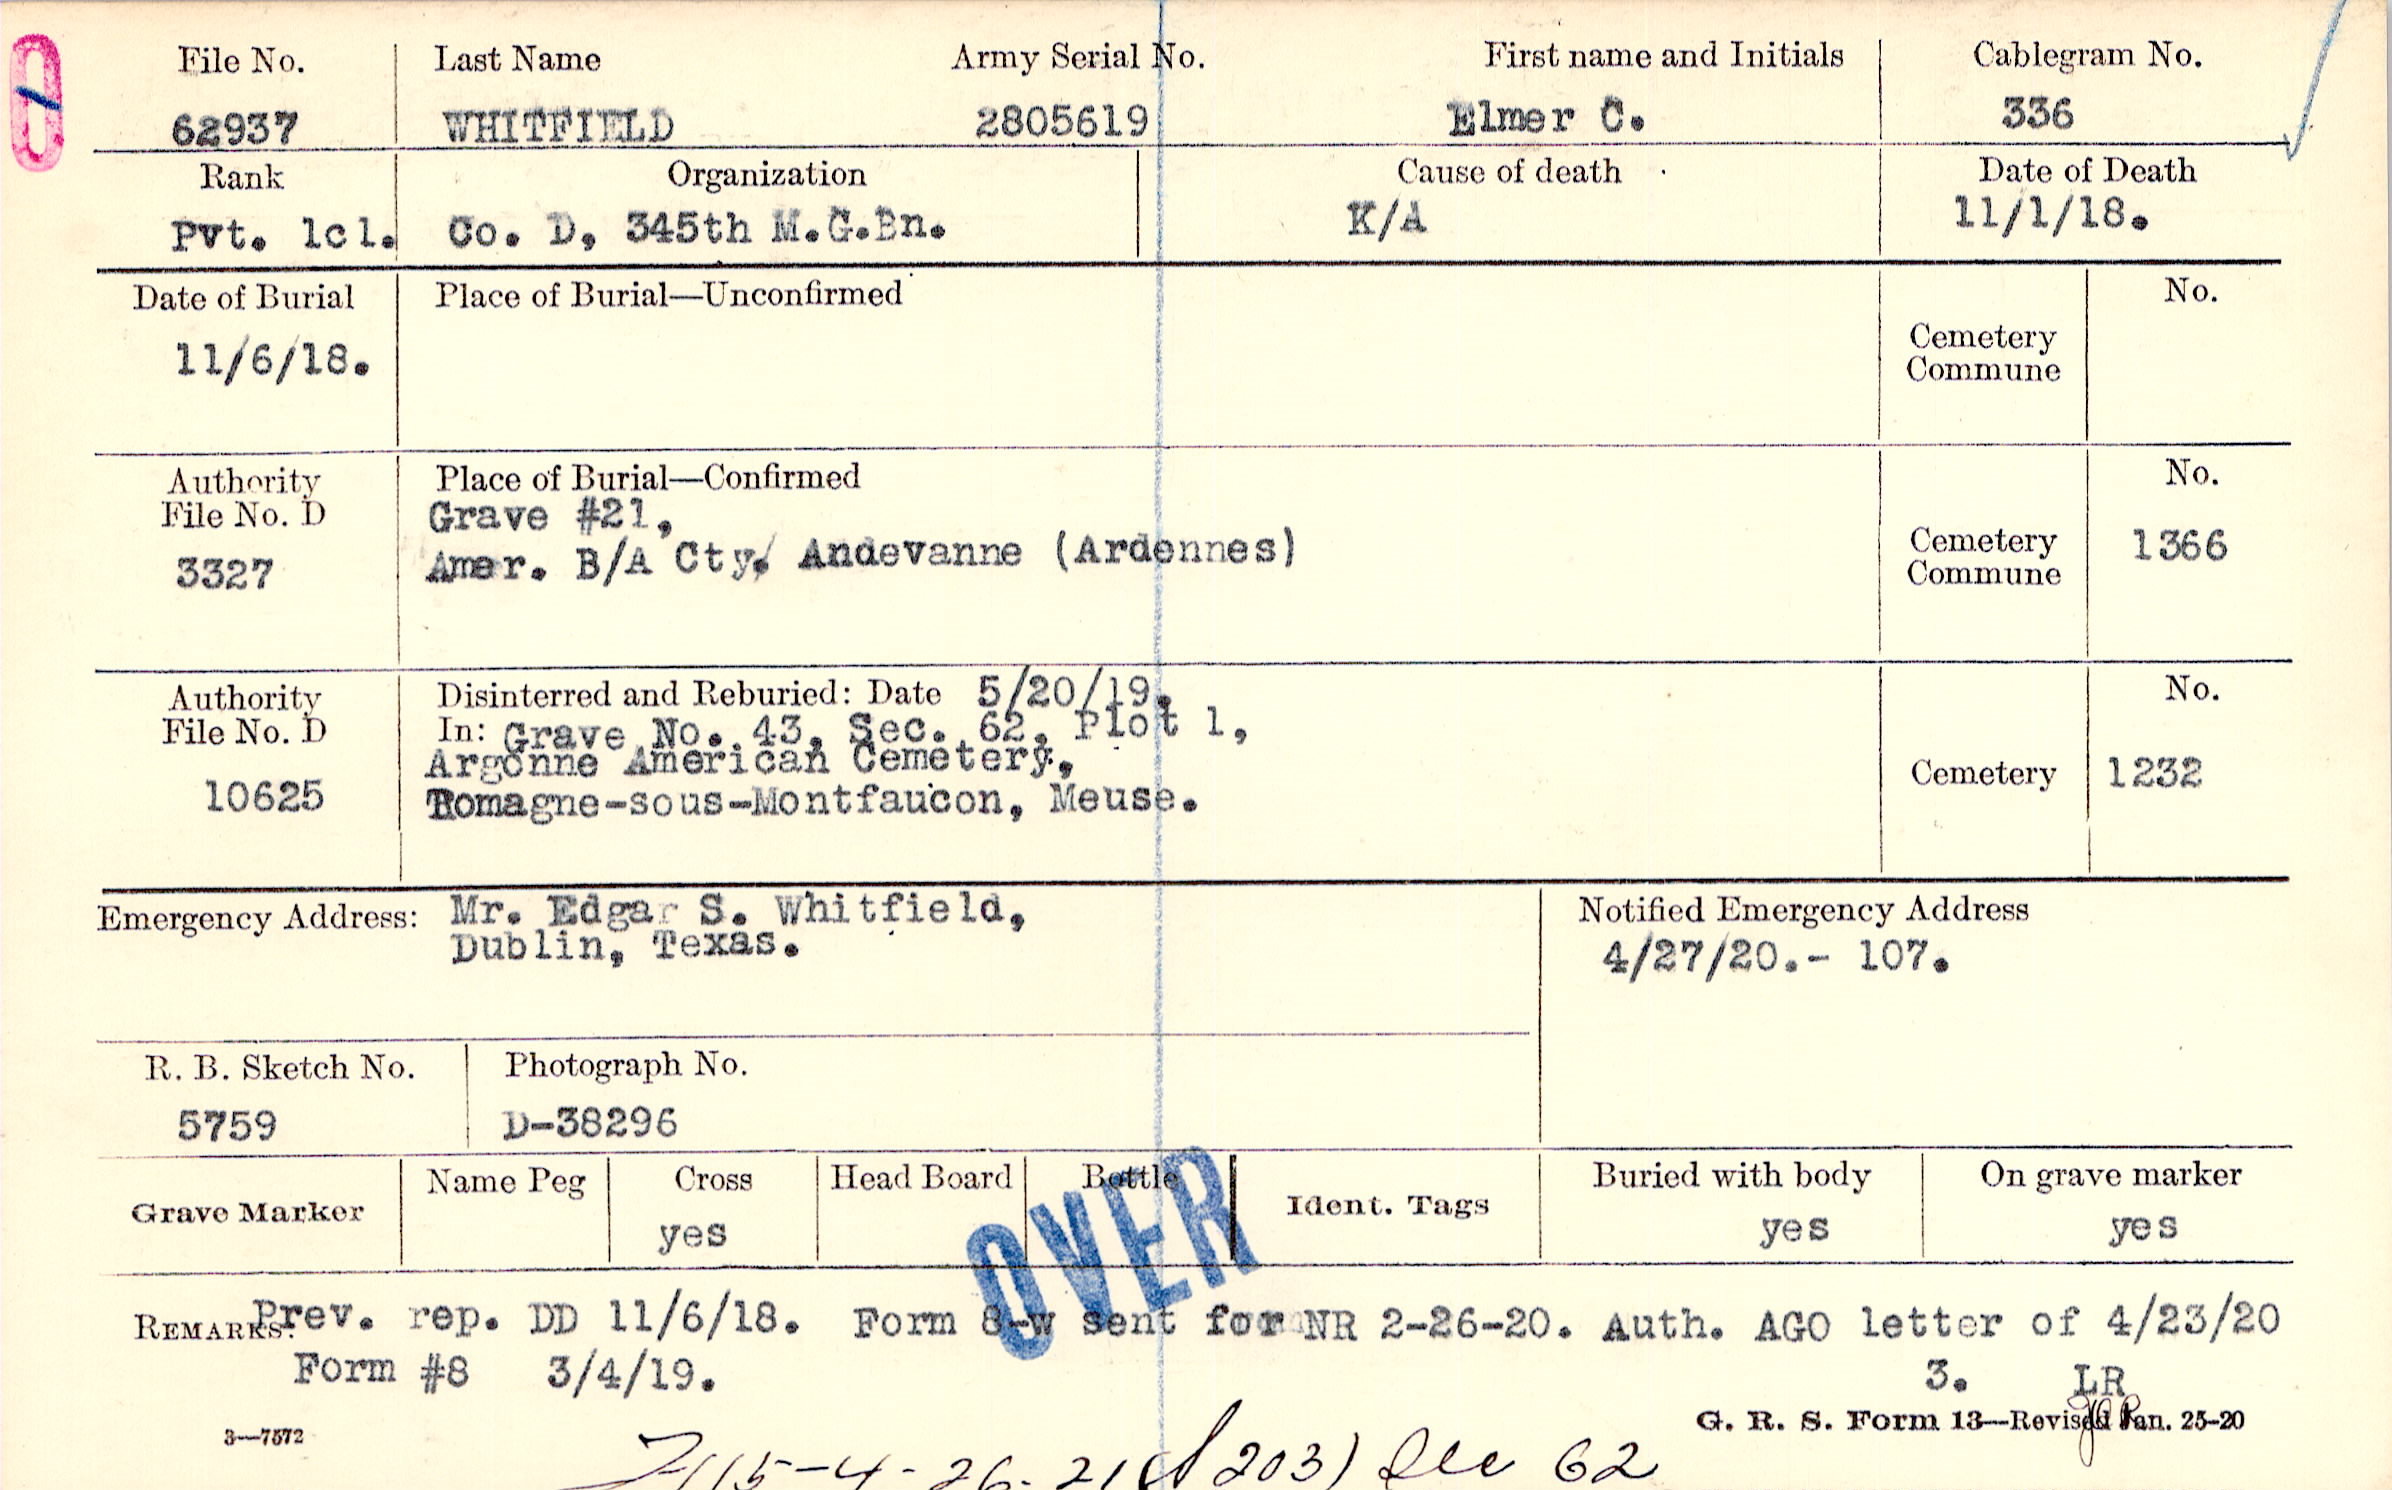 File No. Last Name Army Serial No. First name and Initials Cablegram No.
62937 WHITFIELD 2805619 Elmer C. 336
Rank Organization Cause of death Date of Death
Pvt. 1cl. Co. D, 345th M.G.Bn. K/A 11/1/18.
Date of Burial Place of Burial—Unconfirmed No.
11/6/18. Cemetery
Commune
Authority Place of Burial—Confirmed No.
File No. D Grave #21,
3327 Amer. B/A Cty. Andevanne (Ardennes) Cemetery 1366
Commune
Authority Disinterred and Reburied: Date 5/20/19. No.
File No. D In: Grave No. 43, Sec. 62, Plot 1,
Argonne American Cemetery,
10625 Romagne-sous-Montfaucon, Meuse. Cemetery 1232
Emergency Address: Mr. Edgar S. Whitfield, Notified Emergency Address
Dublin, Texas. 4/27/20.- 107.
R. B. Sketch No. Photograph No.
5759 D-38296
Grave Marker Name Peg Cross Head Board Bottle Ident. Tags Buried with body On grave marker
yes yes yes
OVER
REMARKS: Prev. rep. DD 11/6/18. Form 8-w sent for NR 2-26-20. Auth. AGO letter of 4/23/20
Form #8 3/4/19. 3. LR
3—7572 G. R. S. Form 13—Revised Jan. 25-20
4-26-21 203) Sec 62